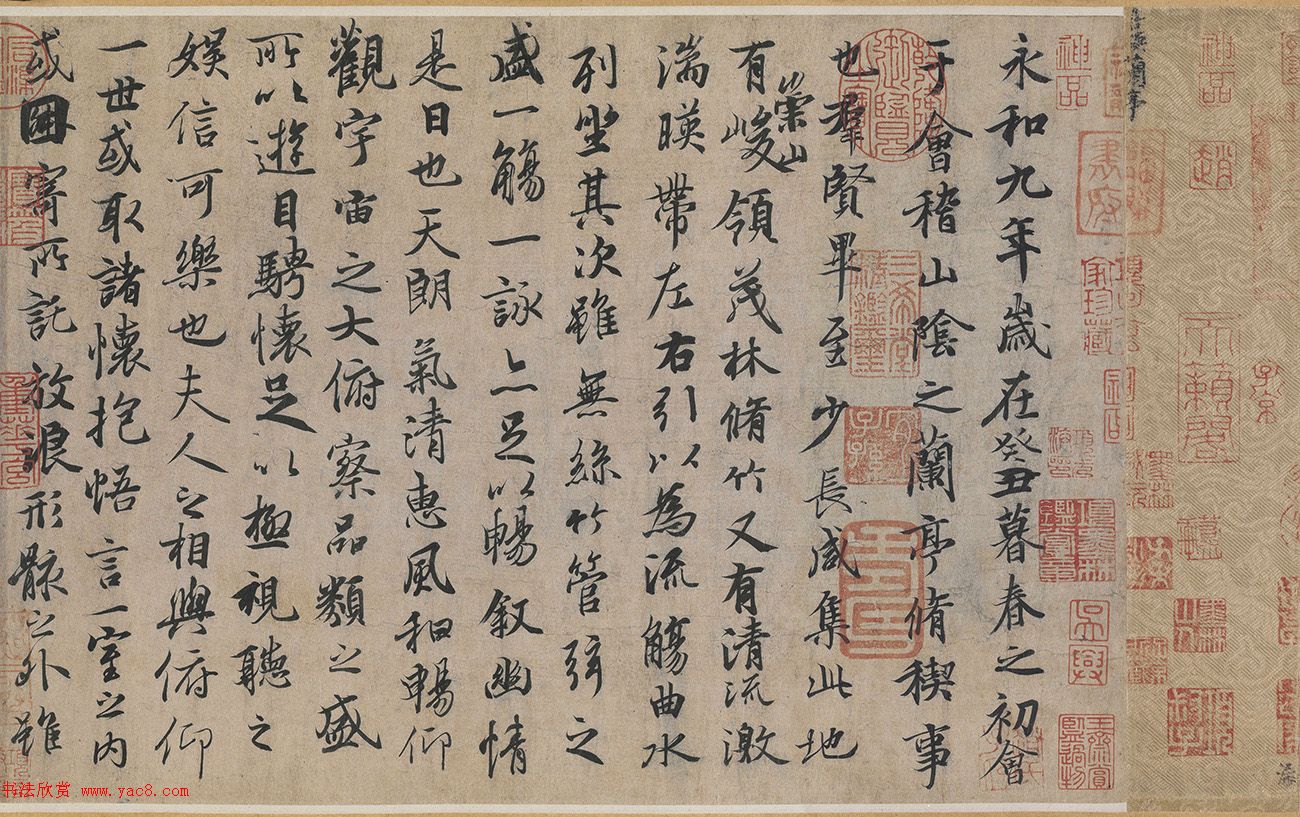 神品
天籟閣
子京
神品
吳興
永和九年歲在癸丑暮春之初會
于會稽山陰之蘭亭脩稧事
也羣賢畢至少長咸集此地
有崇山峻領茂林脩竹又有清流激
湍暎帶左右引以為流觴曲水
列坐其次雖無絲竹管弦之
盛一觴一詠亦足以暢敘幽情
是日也天朗氣清惠風和暢仰
觀宇宙之大俯察品類之盛
所以遊目騁懷足以極視聽之
娛信可樂也夫人之相與俯仰
一世或取諸懷抱悟言一室之內
或因寄所託放浪形骸之外雖
书法欣赏 www.yac8.com